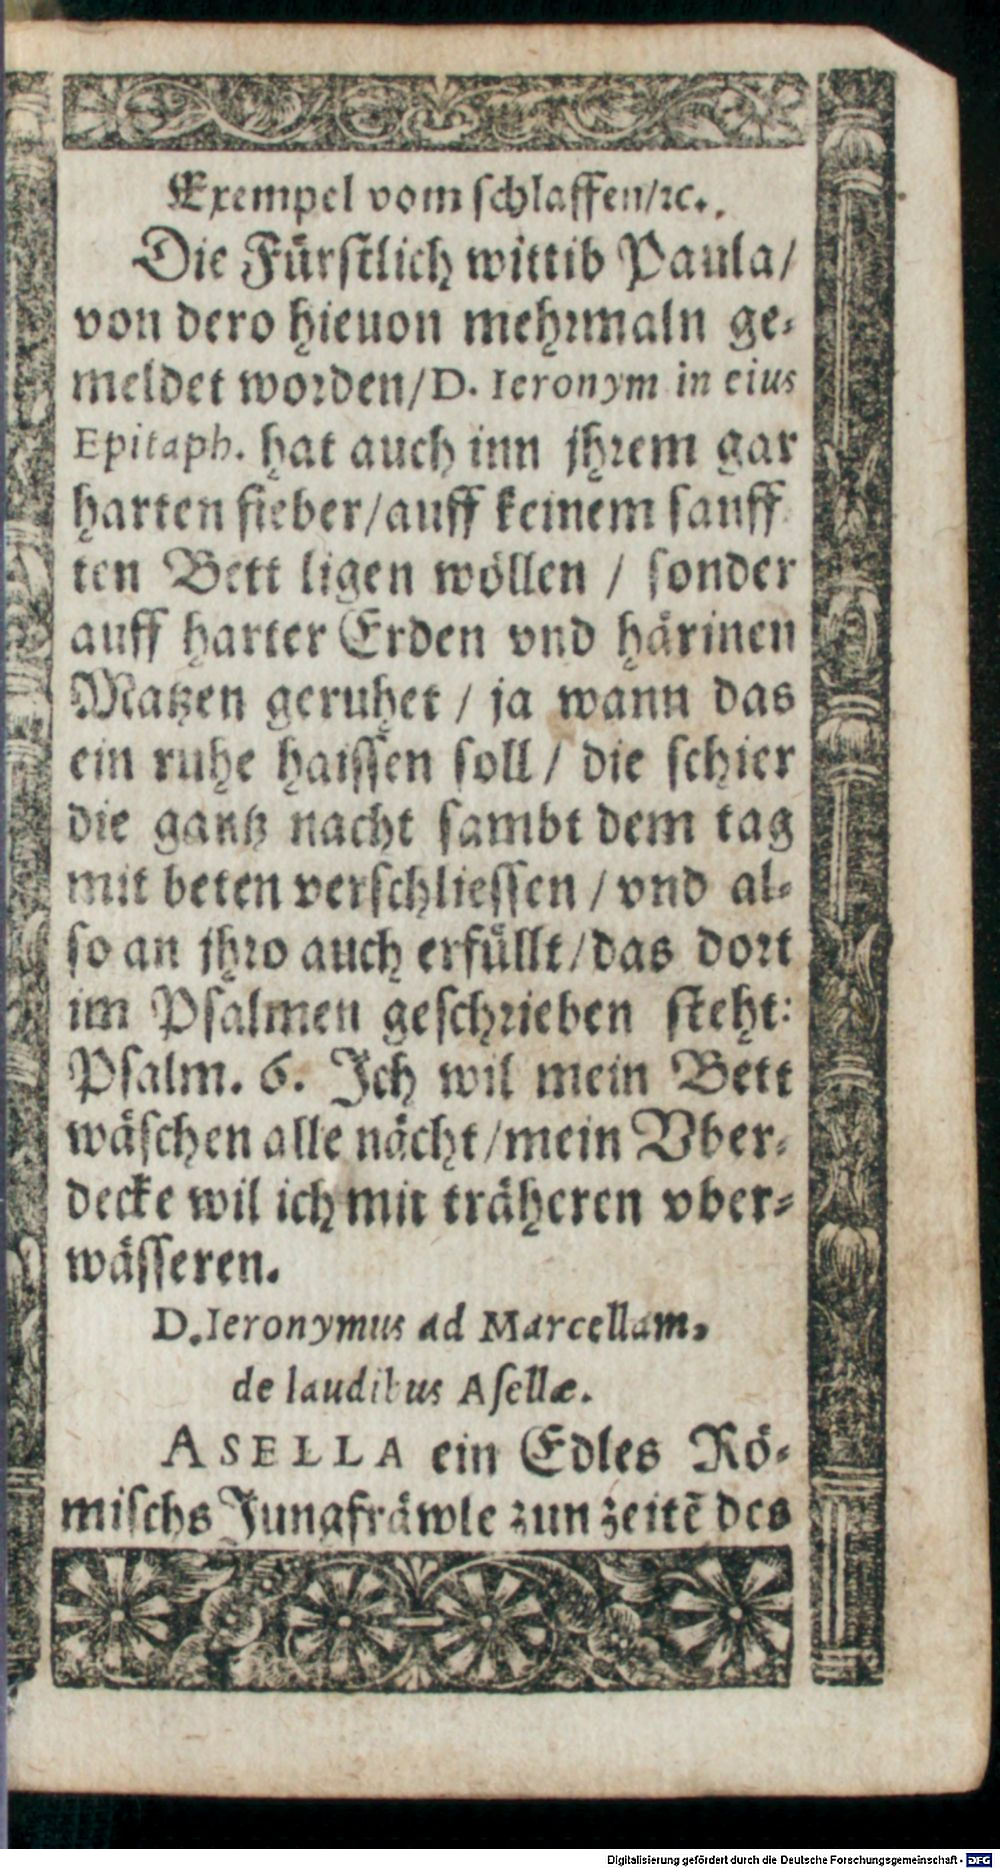 Exempel vom schlaffen/ꝛc..
Die Fürstlich wittib Paula/
von dero hieuon mehrmaln ge-
meldet worden/D. Ieronym in eius
Epitaph. hat auch inn jhrem gar
harten fieber/auff keinem sauff
ten Bett ligen wöllen / sonder
auff harter Erden vnd härinen
Matzen geruhet / ja wann das
ein ruhe haissen soll / die schier
die gantz nacht sambt dem tag
mit beten verschliessen / vnd al-
so an jhro auch erfüllt/das dort
im Psalmen geschrieben steht:
Psalm. 6. Ich wil mein Bett
wäschen alle nächt/mein Vber-
decke wil ich mit träheren vber-
wässeren.
D.Ieronymus ad Marcellam,
de laudibus Asellæ.
ASELLA ein Edles Rö-
mischs Jungfräwle zun zeitē des
Digitalisierung gefördert durch die Deutsche Forschungsgemeinschaft - DFG